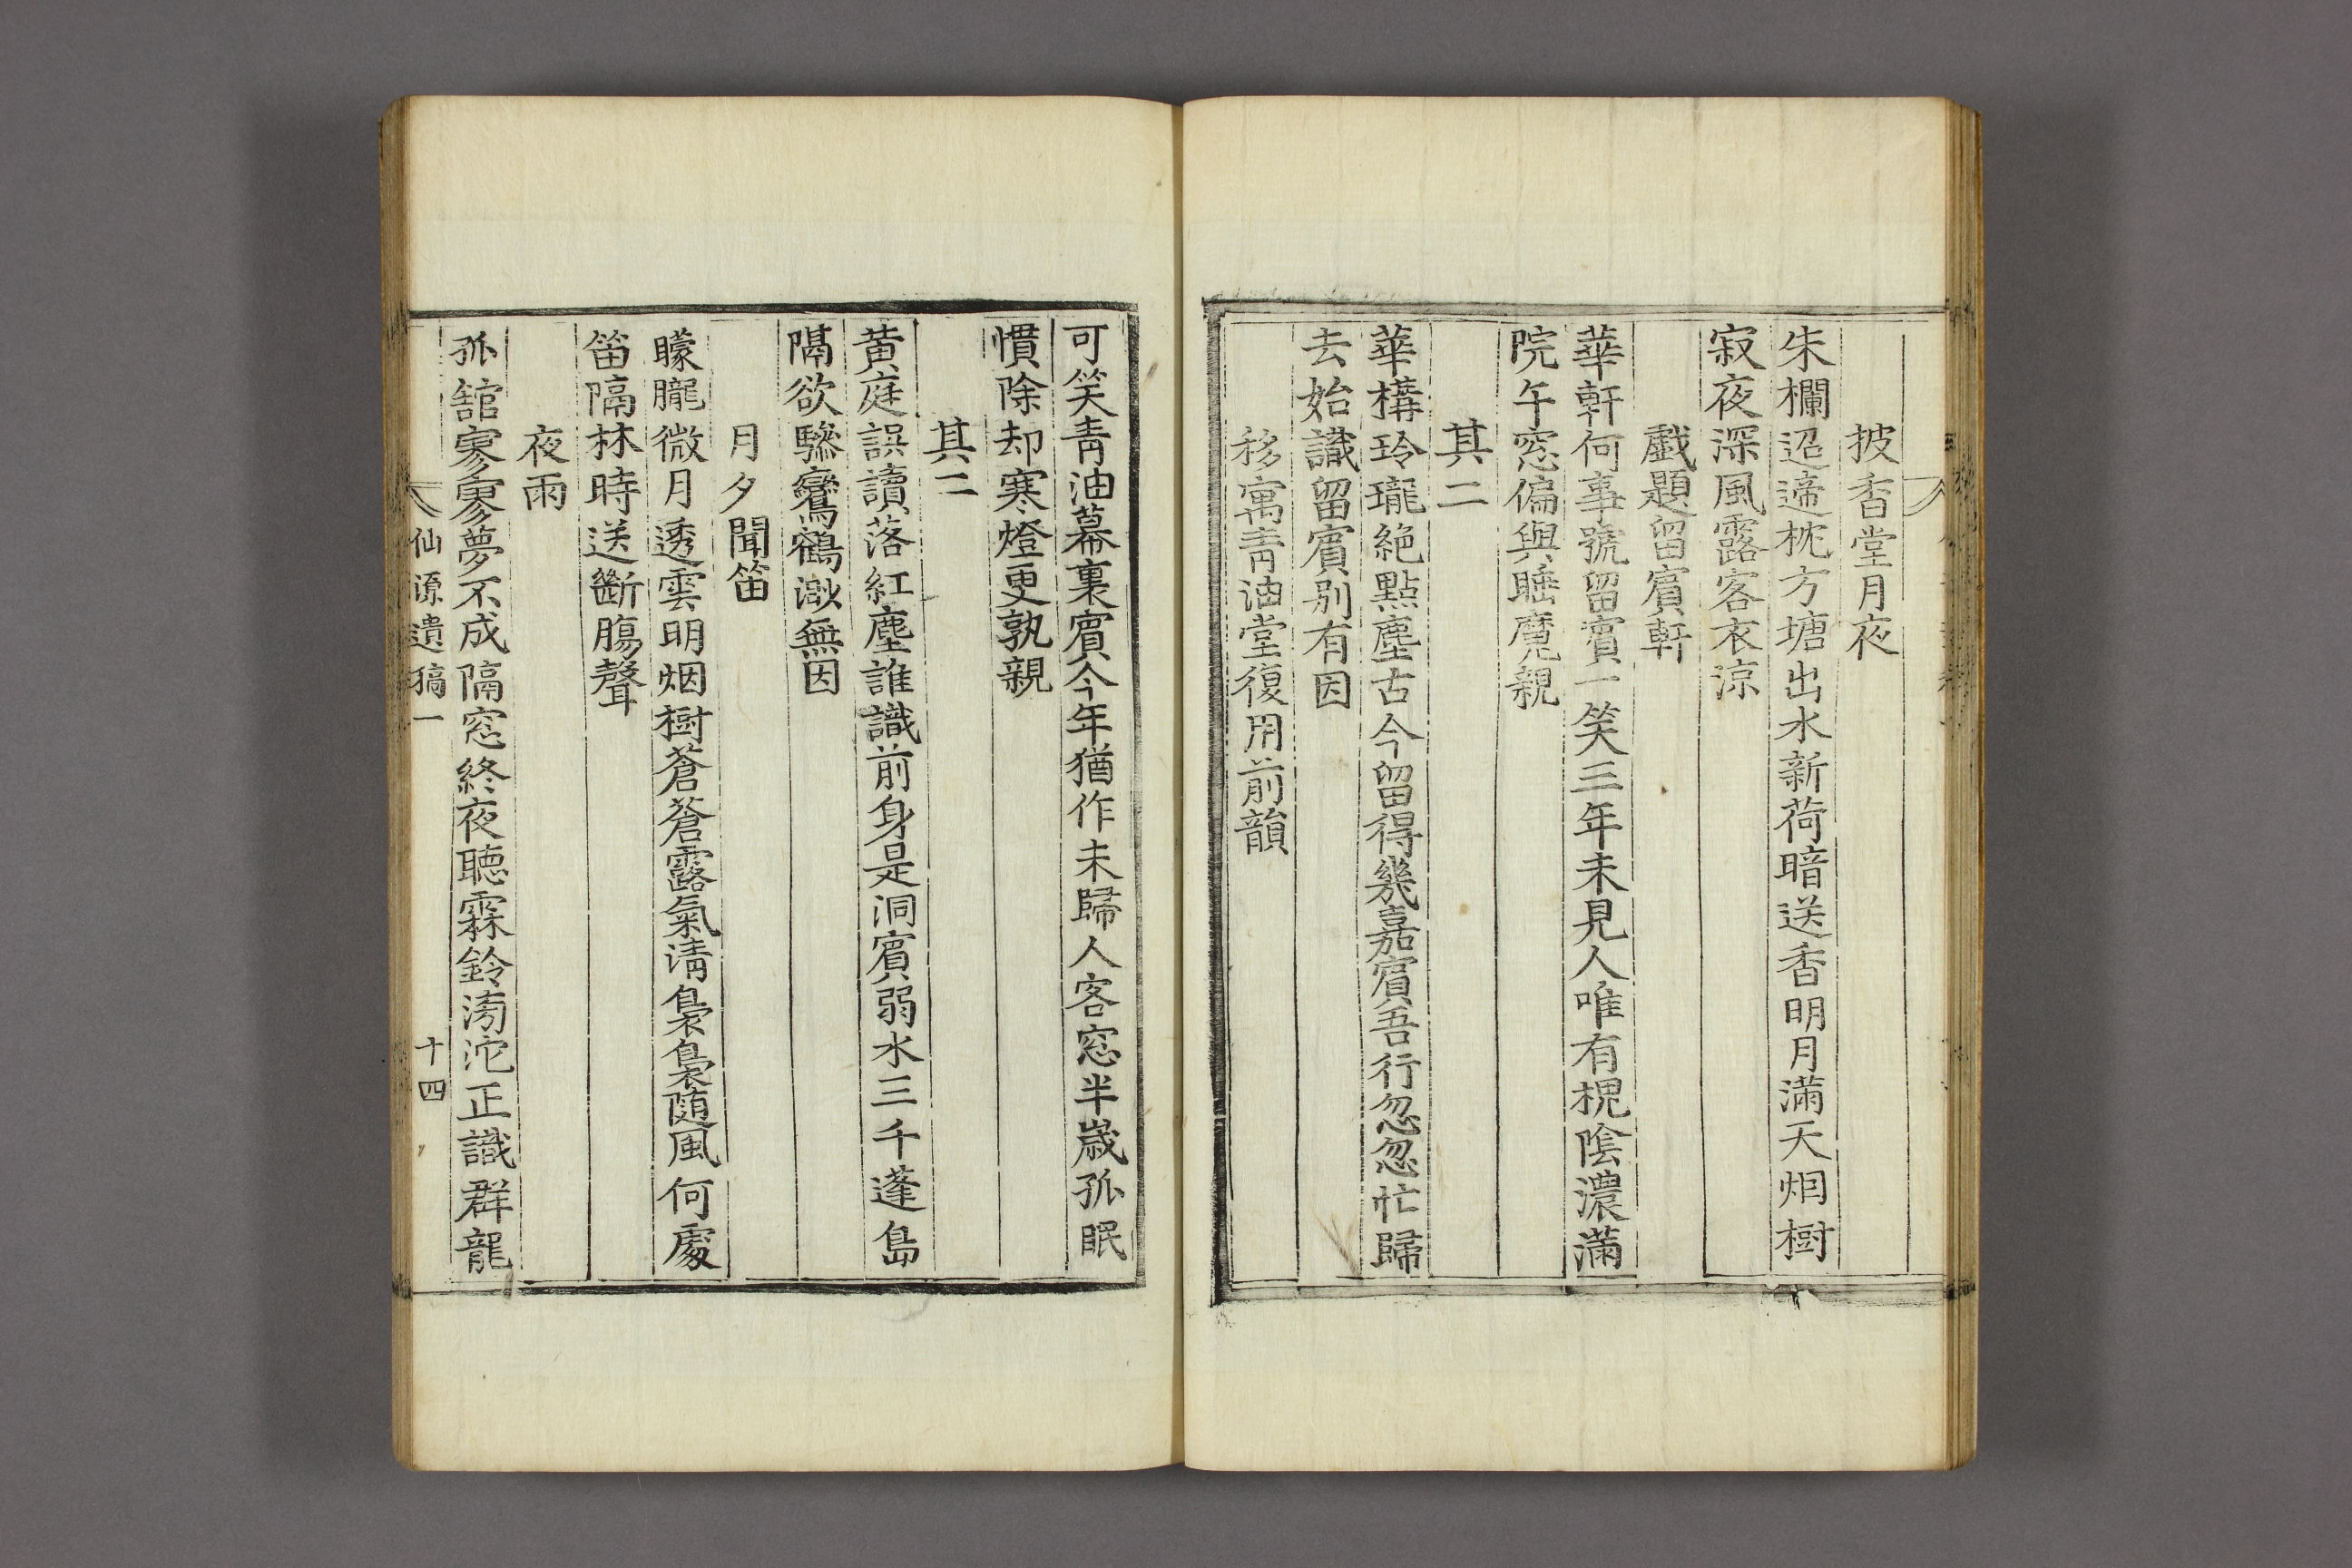 披香堂月夜
朱欄迢遆枕方塘出水新荷暗送香明月滿天烟樹
寂夜深風露客衣凉
戱題留賓軒
華軒何事號留賓一笑三年未見人唯有槐陰濃滿
院午窓偏與睡魔親
其二
華構玲瓏絶點塵古今留得幾嘉賓吾行忽忽忙歸
去始識留賓別有因
移寓靑油堂復用前韻
可笑靑油幕裏賓今年猶作未歸人客窓半歲孤眠
慣除却寒燈更孰親
其二
黃庭誤讀落紅塵誰識前身是洞賓弱水三千蓬島
隔欲驂鸞鶴漵無因
月夕聞笛
矇朧微月透雲明烟樹蒼蒼露氣淸裊裊隨風何處
笛隔林時送斷膓聲
夜雨
孤舘寥寥夢不成隔窓終夜聽霖鈴滂沱正識群龍
仙源遺稿一
十四